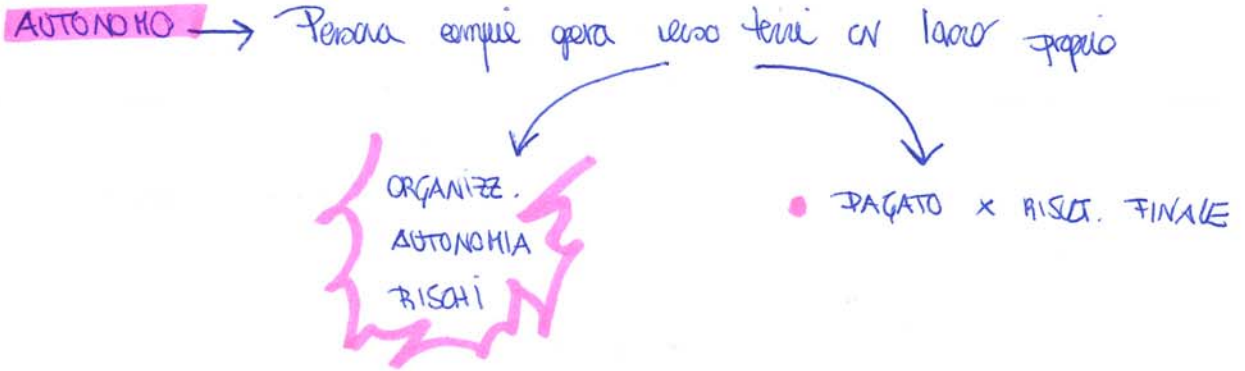 AUTONOMO → Persona compie opera verso terzi cn lavoro proprio
ORGANIZZ.
AUTONOMIA
RISCHI
• PAGATO x RISULT. FINALE